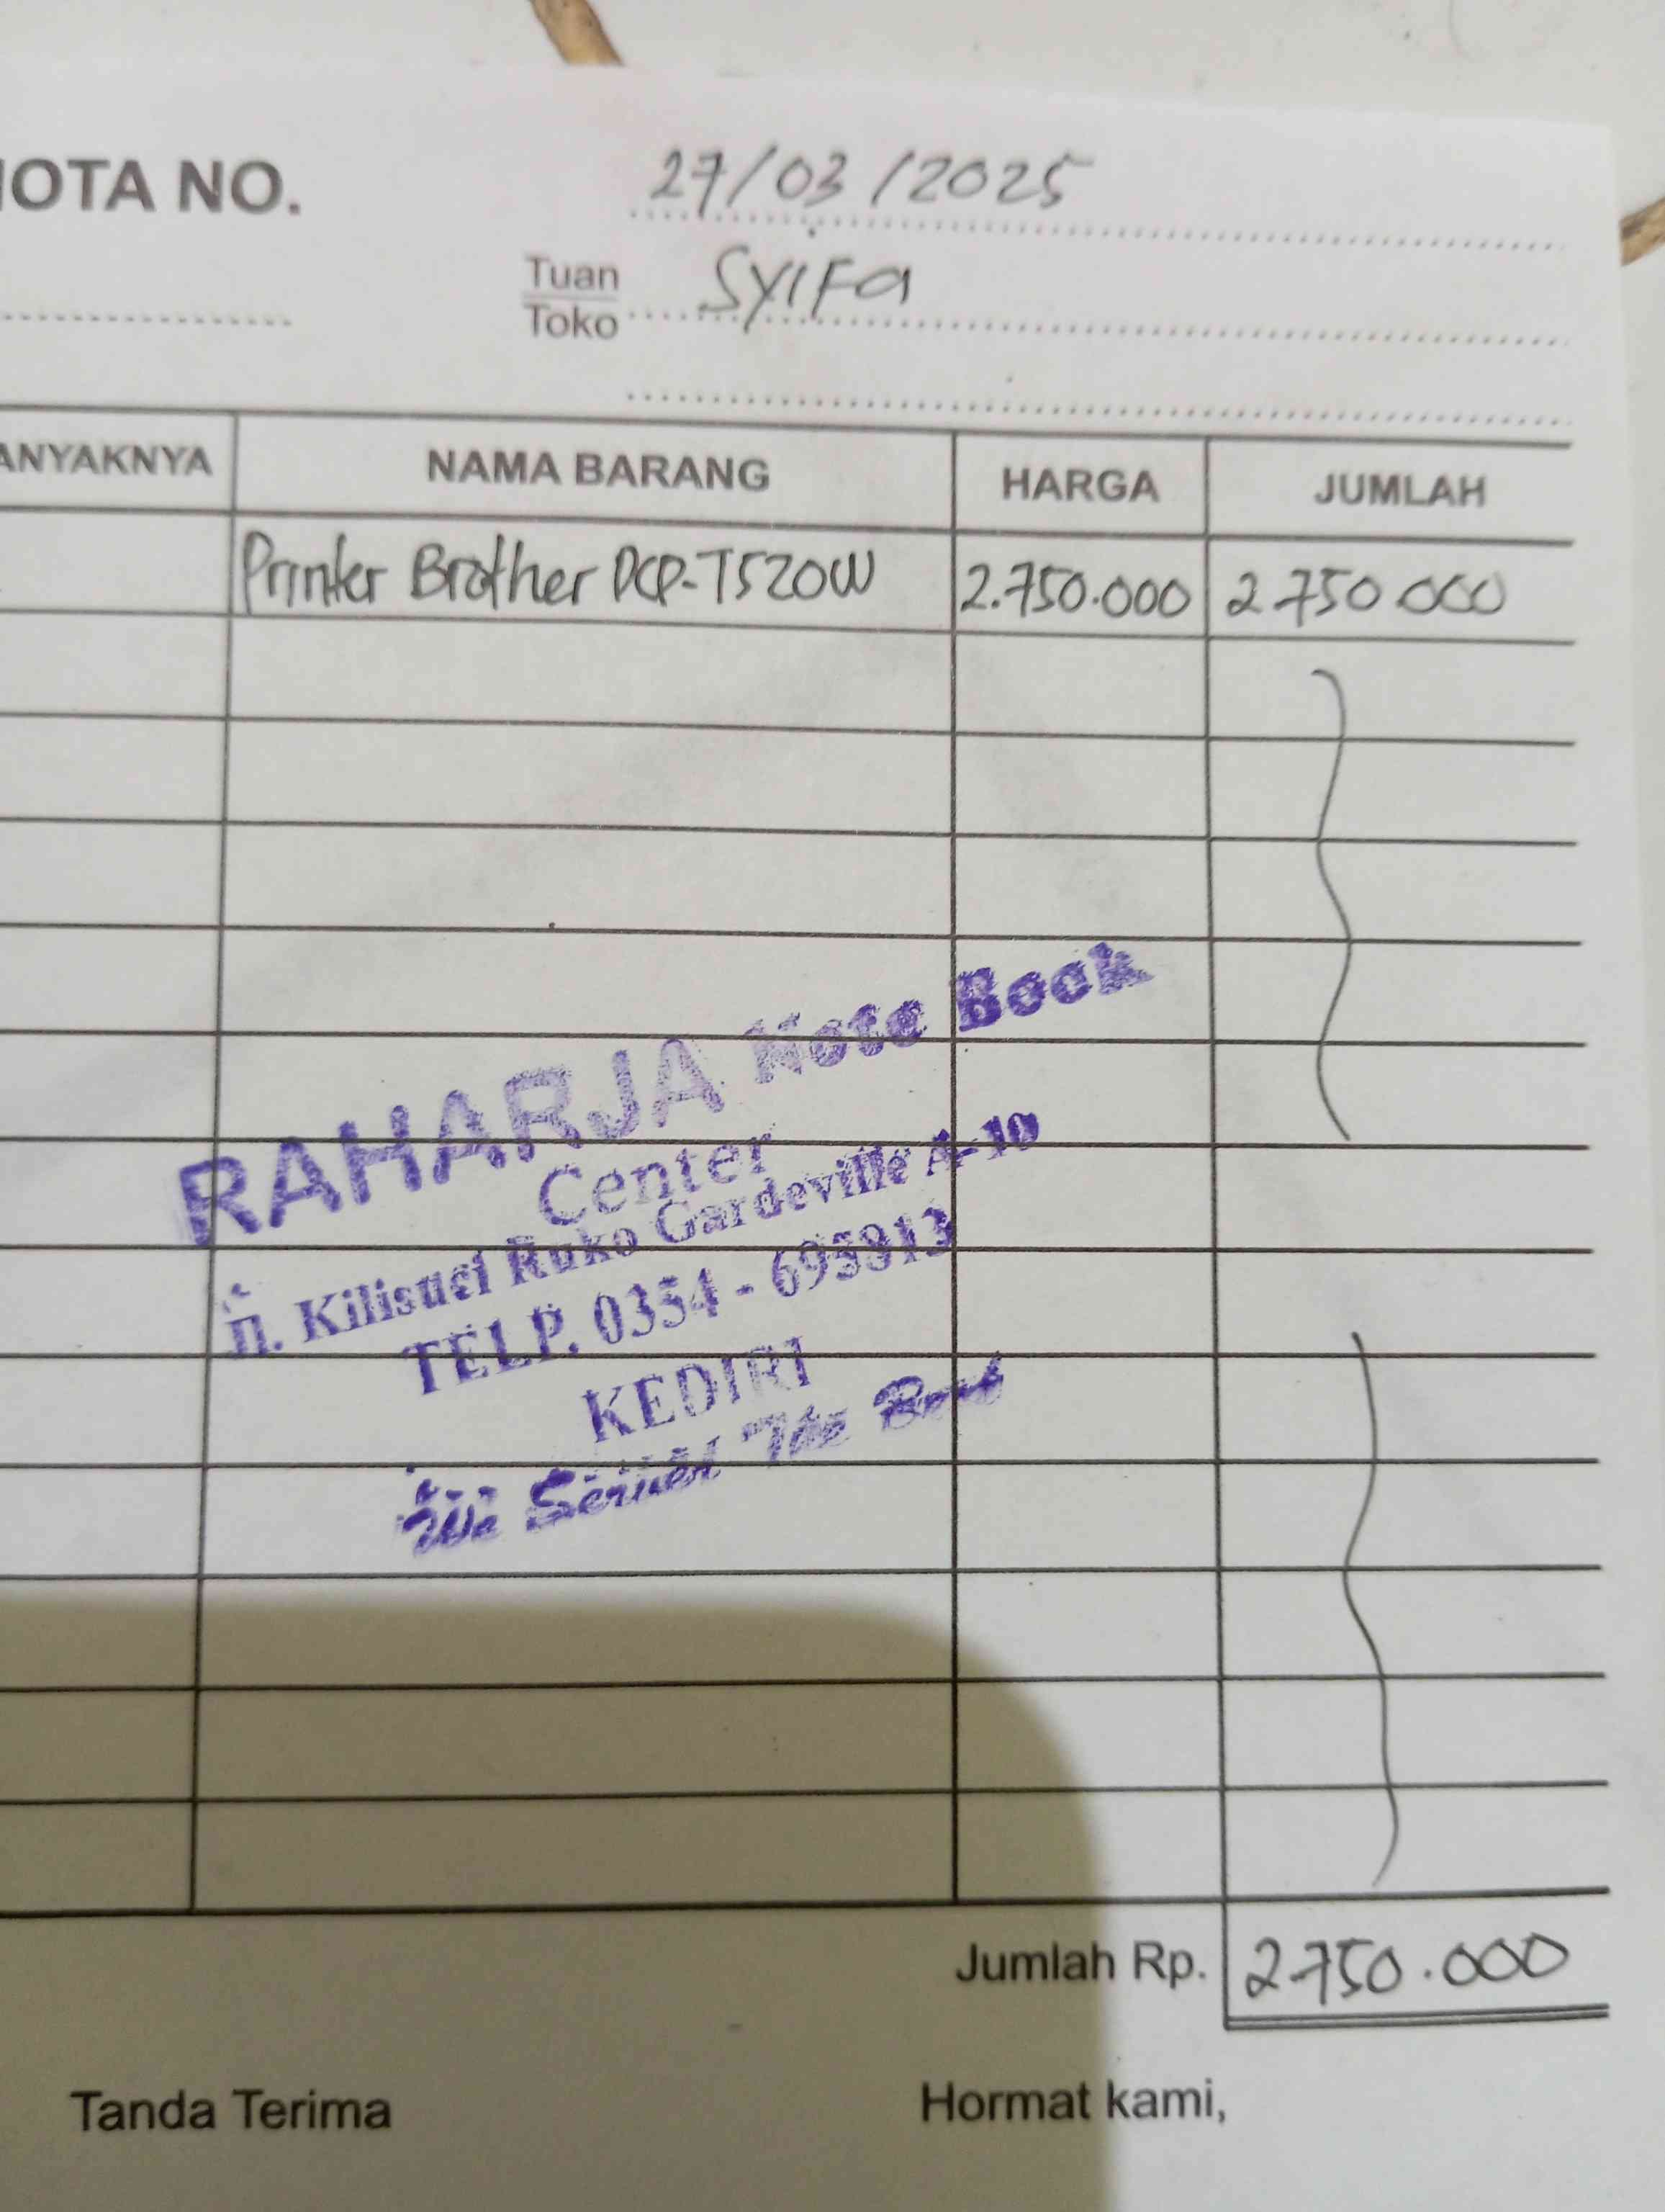 NOTA NO.
27/03/2025
Tuan
Toko
SYIFA
ANYAKNYA NAMA BARANG HARGA JUMLAH
Printer Brother DCP-T520W 2.750.000 2.750.000
RAHARJA Note Book
Center
Jl. Kilisuci Ruko Gardeville A-10
TELP. 0354 - 693913
KEDIRI
We Served The Best
Jumlah Rp. 2.750.000
Tanda Terima Hormat kami,